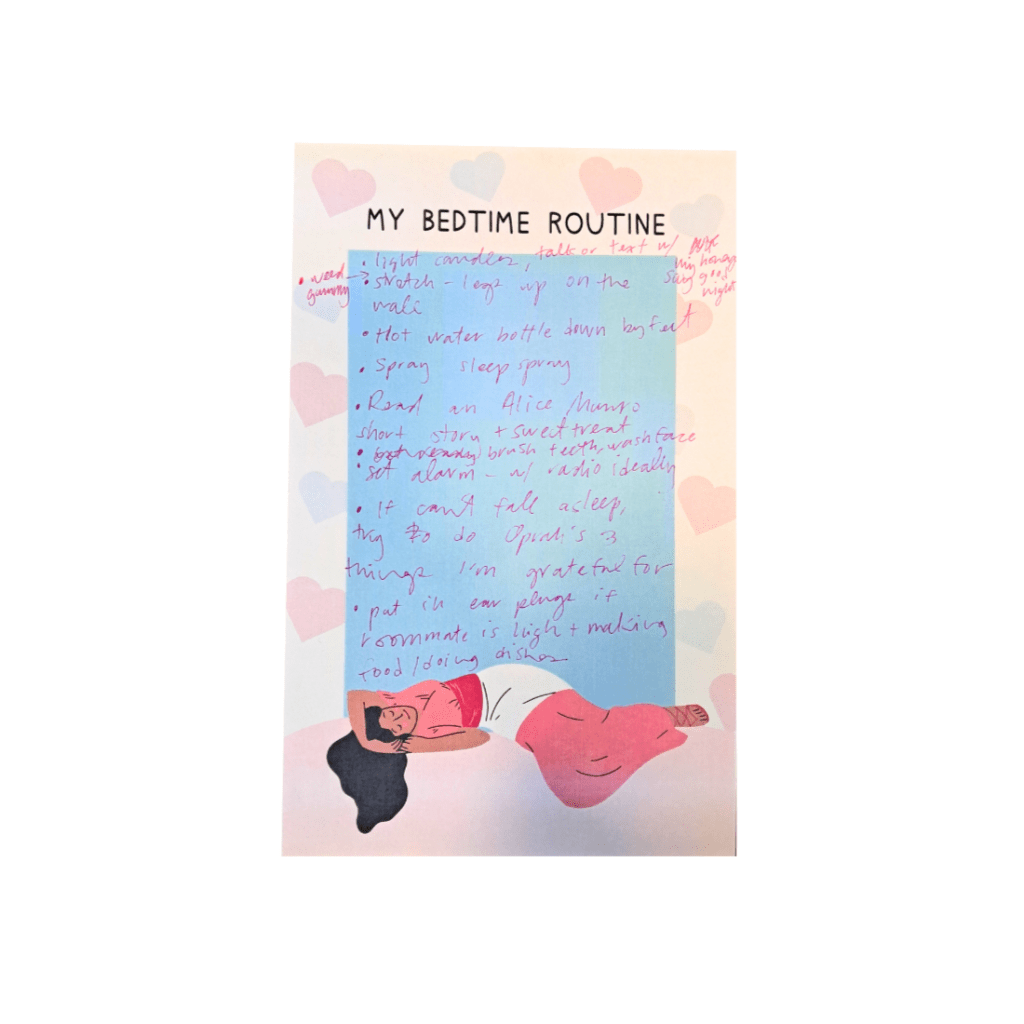 MY BEDTIME ROUTINE
• light candles, talk or text w/
my honey
say good
night
• weed →
gummy
• stretch - legs up on the
wall
• Hot water bottle down by feet
• Spray sleep spray
• Read an Alice Munro
short story + sweet treat
• brush teeth, wash face
• set alarm - w/ radio ideally
• If can't fall asleep,
try to do Oprah's 3
things I'm grateful for
• put in ear plugs if
roommate is high + making
food/doing dishes